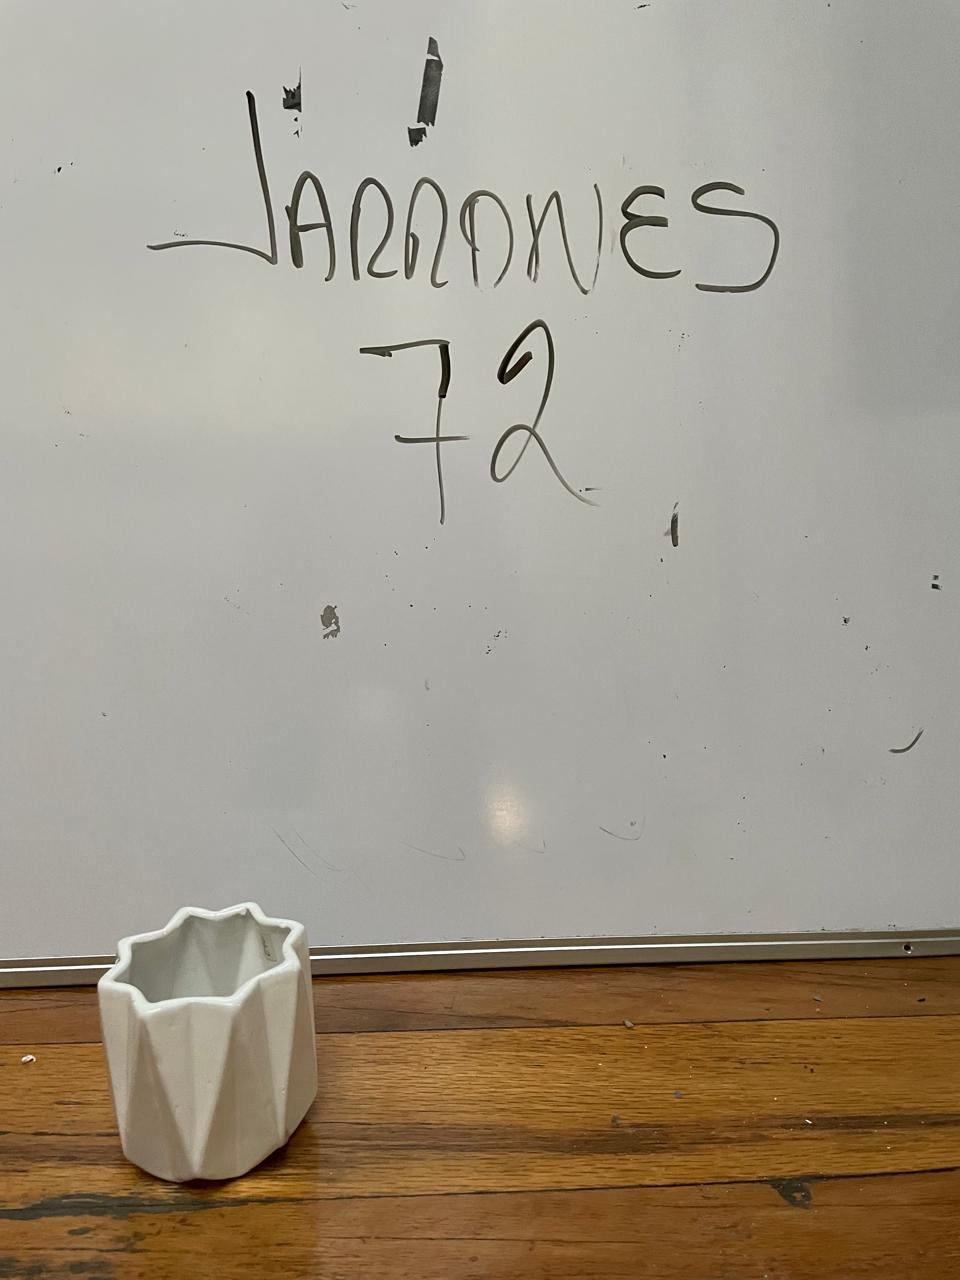 JARRONES
72